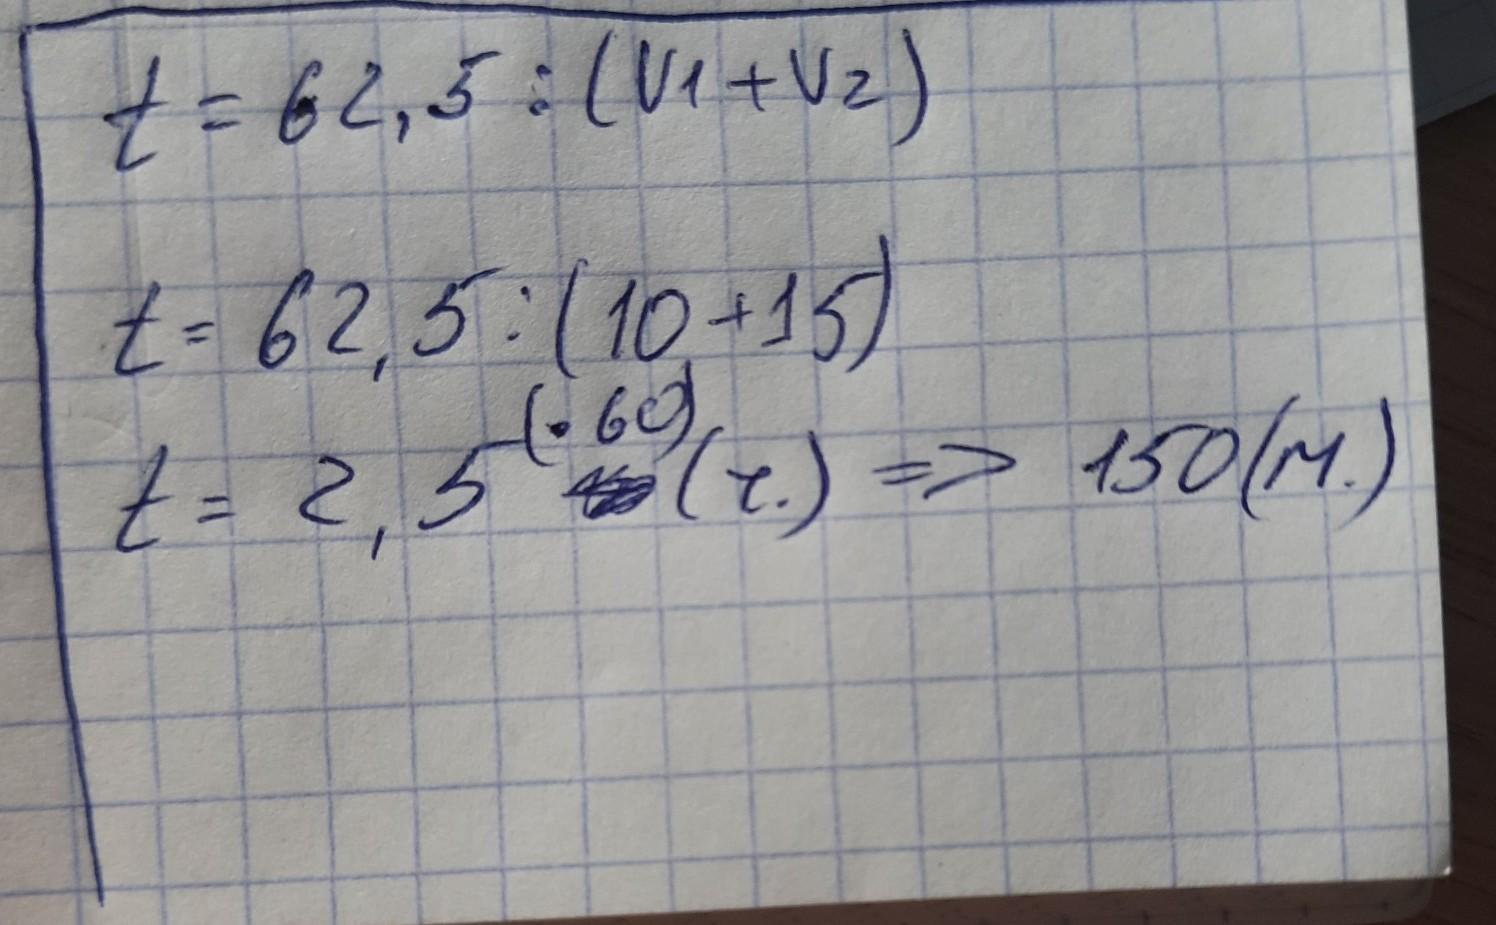 t = 62,5 : (V1 + V2)
t = 62,5 : (10 + 15)
t = 2,5 (· 60) (ч.) => 150 (м.)